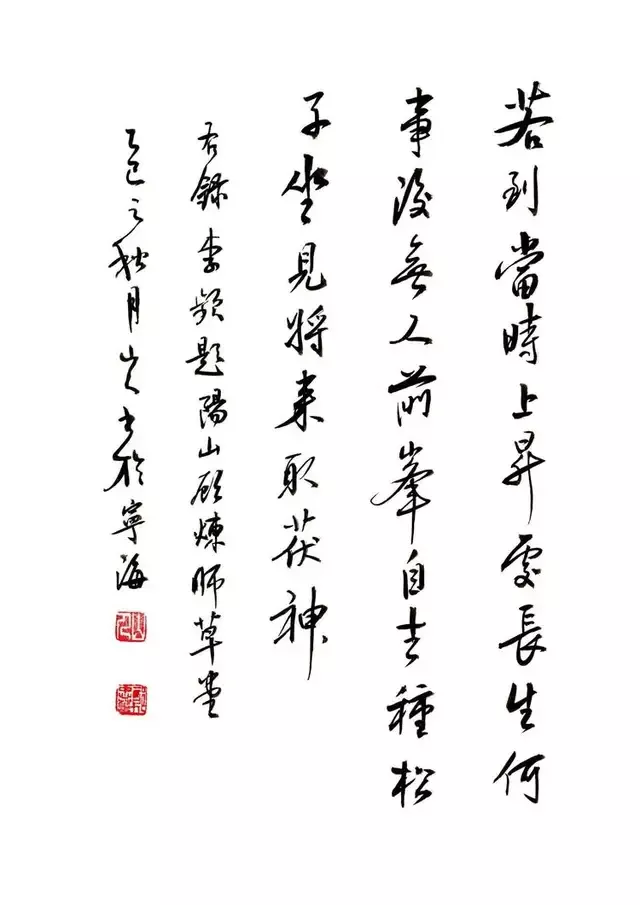 若到當時上昇處長生何
事後無人前峯自去種松
子坐見將來取茯神
右錄李頻題陽山顧煉師草堂
乙巳之秋月山人書於寧海